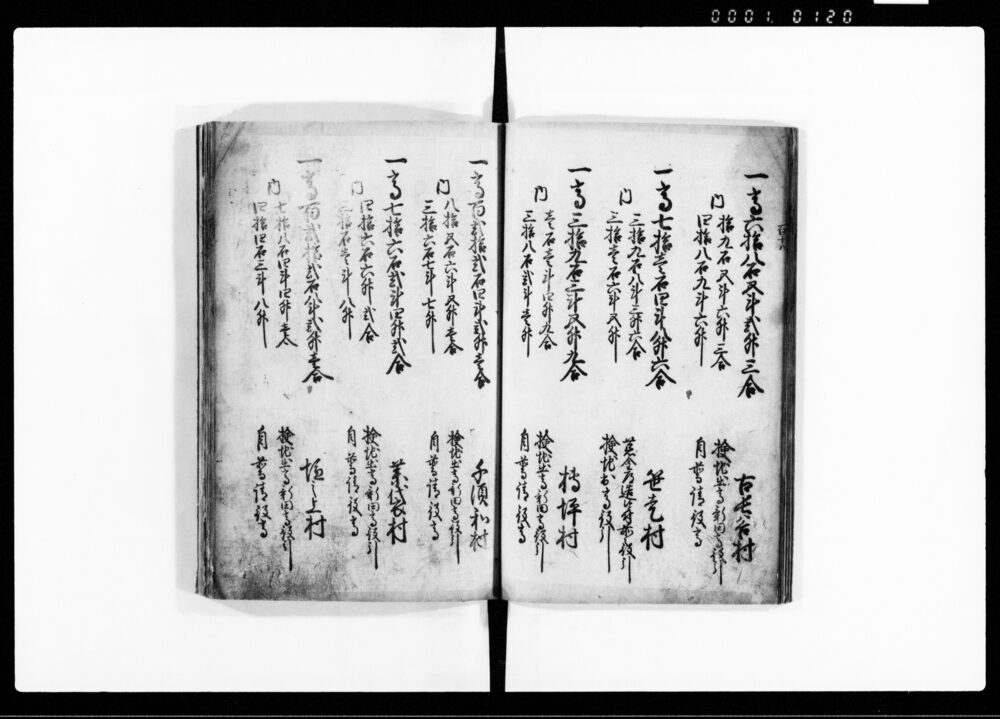 0001 0120
一高六拾八石五斗弐升三合
古長谷村
内
拾九石五斗六升三合
検地出高新田高役引
四拾八石九斗六升
自普請役高
一高七拾壱石四斗八升六合
世元村
内
三拾九石八斗三升六合
三拾壱石六斗五升
検地出高役引
一高三拾九石三斗五升九合
橋坪村
内
壱石壱斗四升九合
検地出高新田高役引
三拾八石弐斗壱升
自普請役高
一高百弐拾弐石四斗弐升壱合
千須和村
内
八拾五石六斗五升壱合
検地出高新田高役引
三拾六石七斗七升
自普請役高
一高七拾六石弐斗四升弐合
薬袋村
内
四拾六石六升弐合
検地出高新田高役引
三拾石壱斗八升
自普請役高
一高百弐拾弐石八斗弐升壱合
塩之上村
内
七拾八石四斗四升壱合
検地出高新田高役引
四拾四石三斗八升
自普請役高